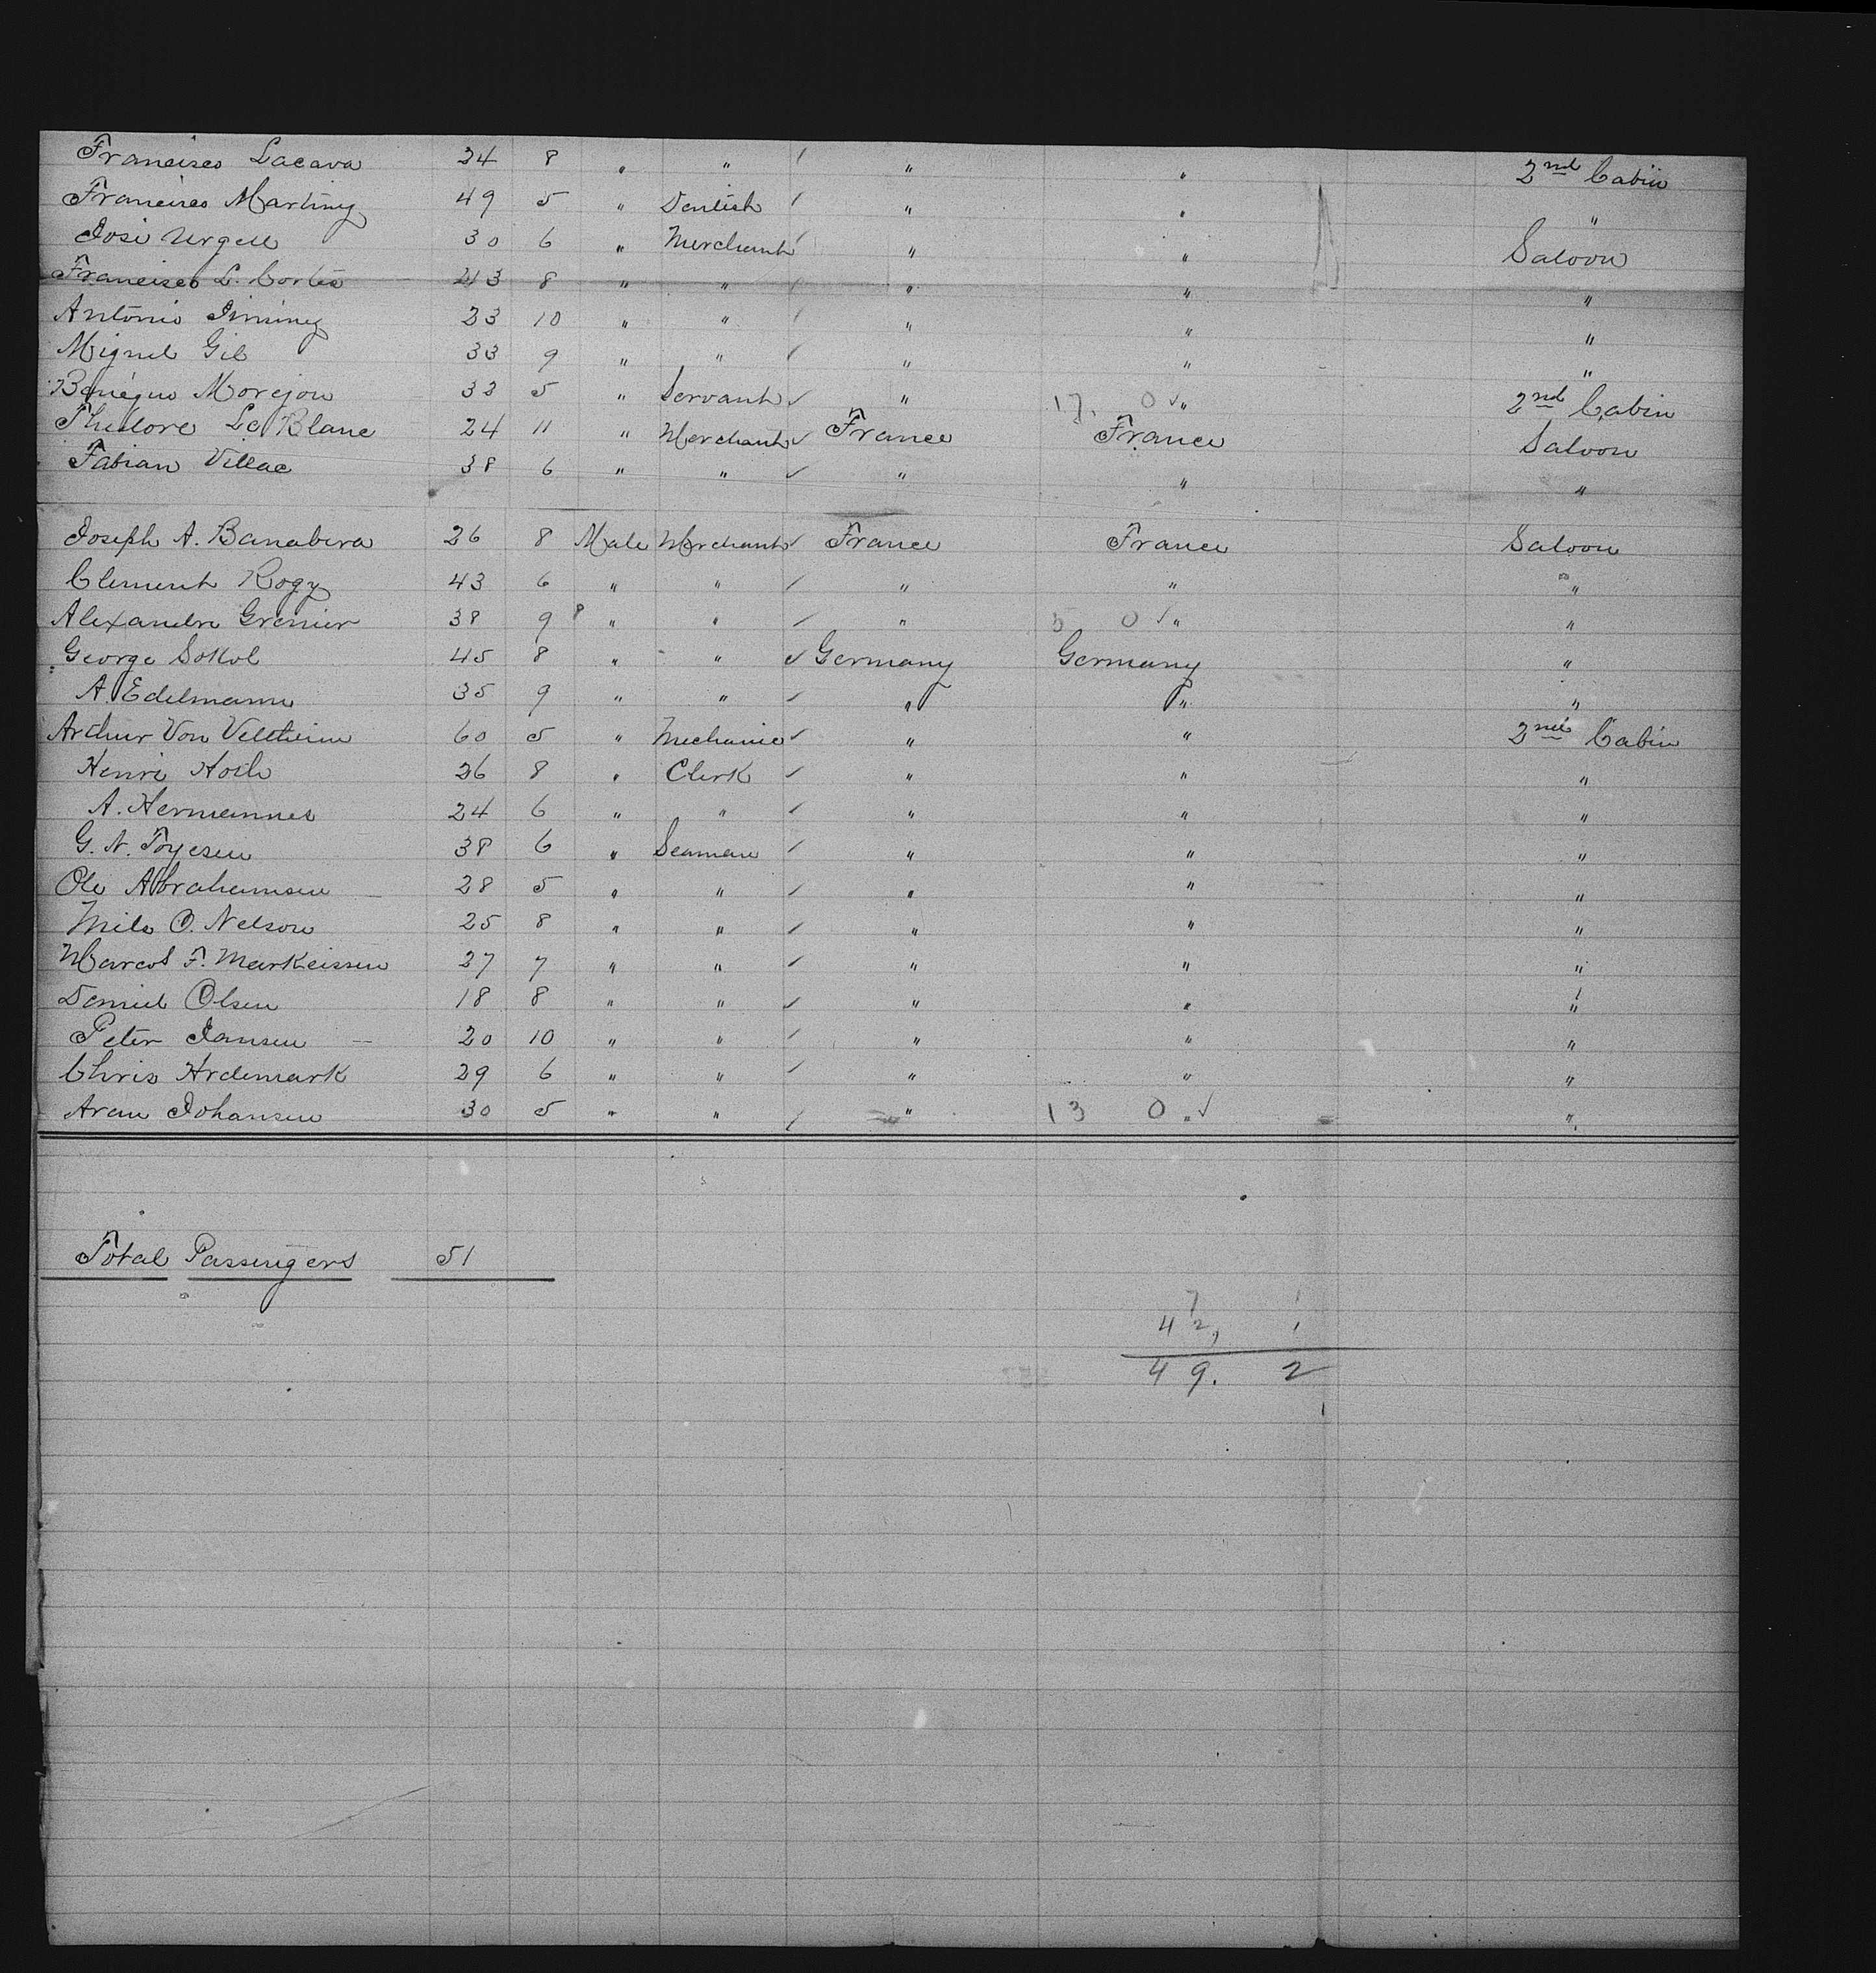 Francisco Lacava 34 8 " " " " 2nd Cabin
Francisco Martiny 49 5 " Dentist " " "
José Urgell 30 6 " Merchant " " Saloon
Francisco L. Cortes 43 8 " " " " "
Antonio Jiminy 23 10 " " " " "
Miguel Gil 33 9 " " " " "
Morejon 33 5 " Servant " 17. 0 " 2nd Cabin
Theodore Le Blanc 24 11 " Merchant France France Saloon
Fabian Villac 38 6 " " " " "
Joseph A. Banabera 26 8 Male Merchant France France Saloon
Clement Rogy 43 6 " " " " "
Alexandre Grenier 38 9 " " " 5 0 " "
George Sokol 45 8 " " Germany Germany "
A. Edelmann 35 9 " " " " "
Arthur Von Veltheim 60 5 " Mechanic " " 2nd Cabin
Henri 26 8 " Clerk " " "
A. Hermannes 24 6 " " " " "
G. N. 38 6 " Seaman " " "
Ole Abrahamsen 28 5 " " " " "
Nils O. Nelson 25 8 " " " " "
F. Markeissen 27 7 " " " " "
Daniel Olsen 18 8 " " " " "
Peter Jansen 20 10 " " " " "
Chris Hrdemark 29 6 " " " " "
Aran Johansen 30 5 " " " 13 0 " "
Total Passengers 51
7 1
42, 1
49. 2